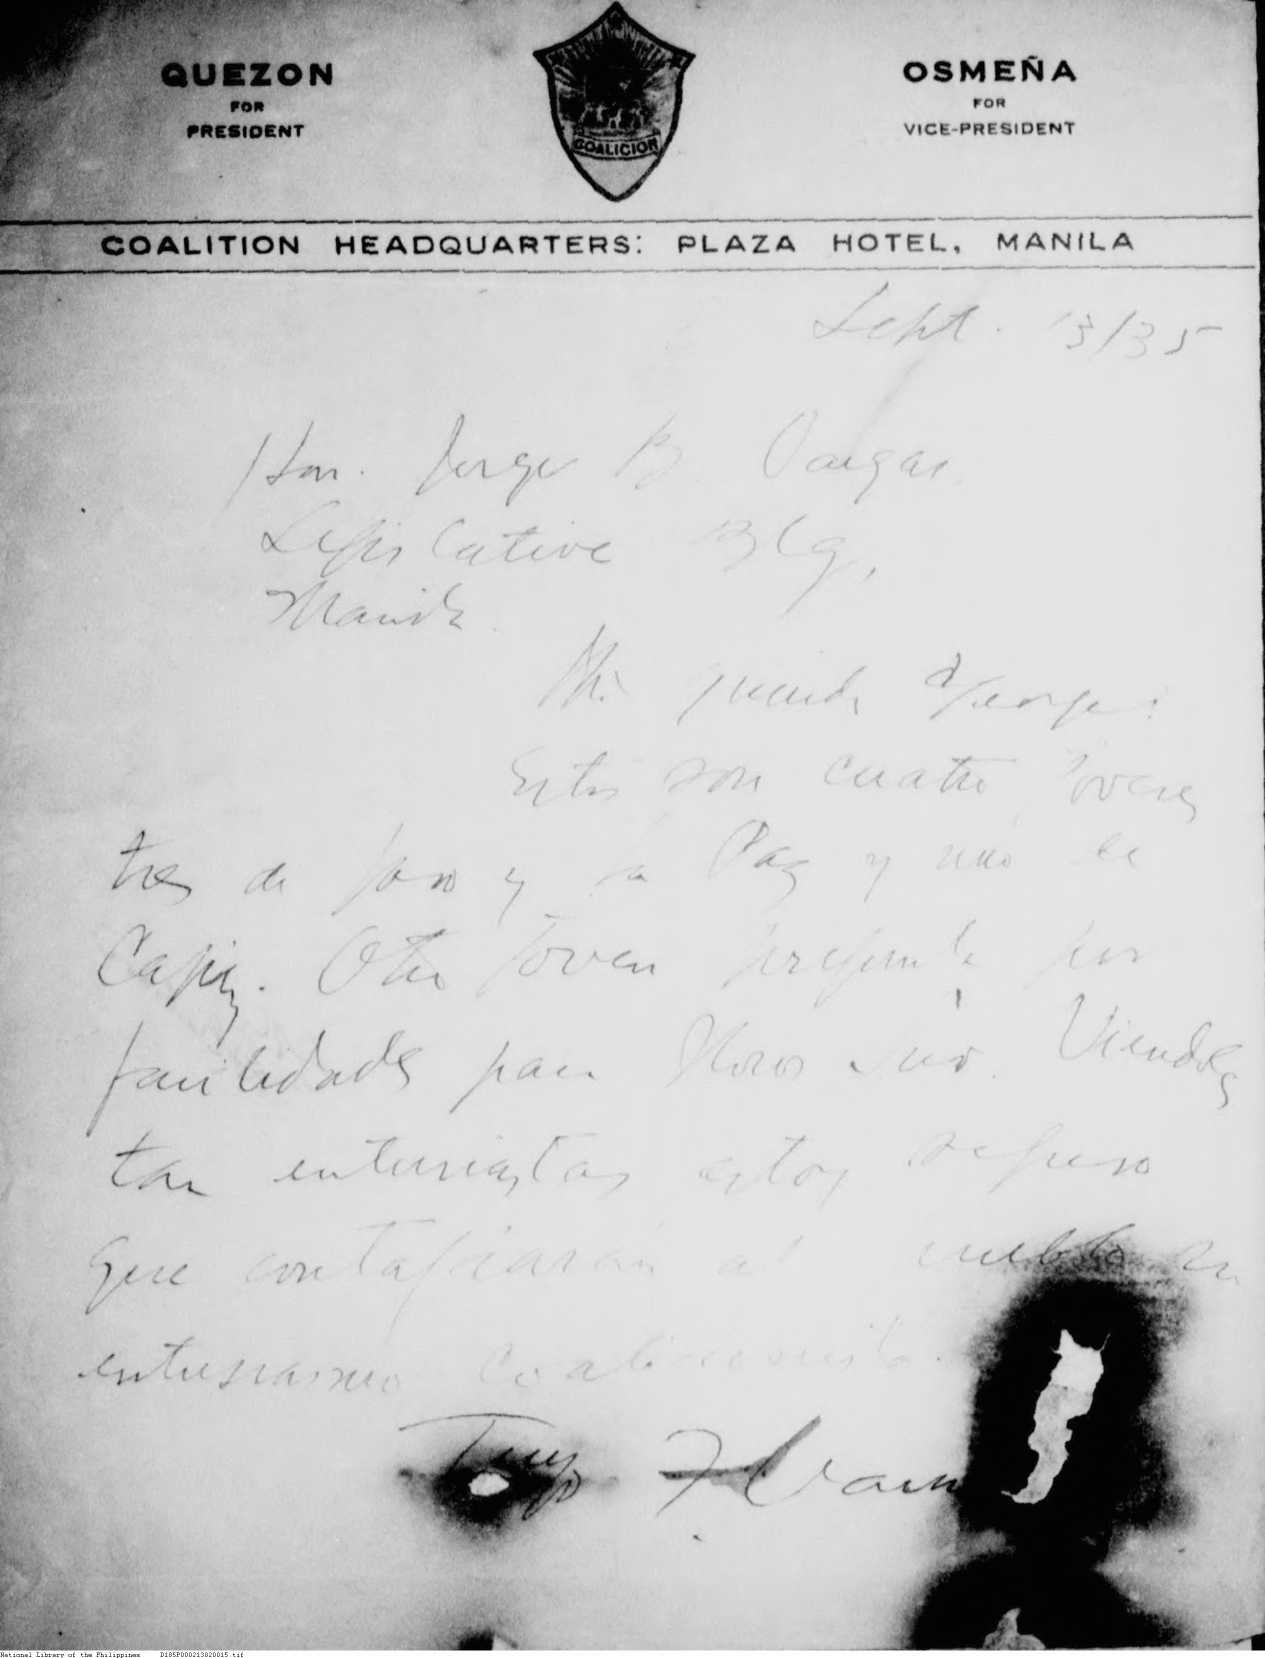 QUEZON
FOR
PRESIDENT
COALICION
OSMEÑA
FOR
VICE-PRESIDENT
COALITION HEADQUARTERS: PLAZA HOTEL, MANILA
Sept. 13/35
Hon. Jorge B. Vargas
Legislative Blg,
Manila.
Mi querido Jorge:
Estos son cuatro jovenes
tres de Jaro y La Paz y uno de
Capiz. Otro joven pregunta por
facilidades para Iloros Sur. Viendoles
tan entusiastas estoy seguro
que contagiaran al pueblo su
entusiasmo coalicionista.
Tuyo
National Library of the Philippines D185P000213820015.tif